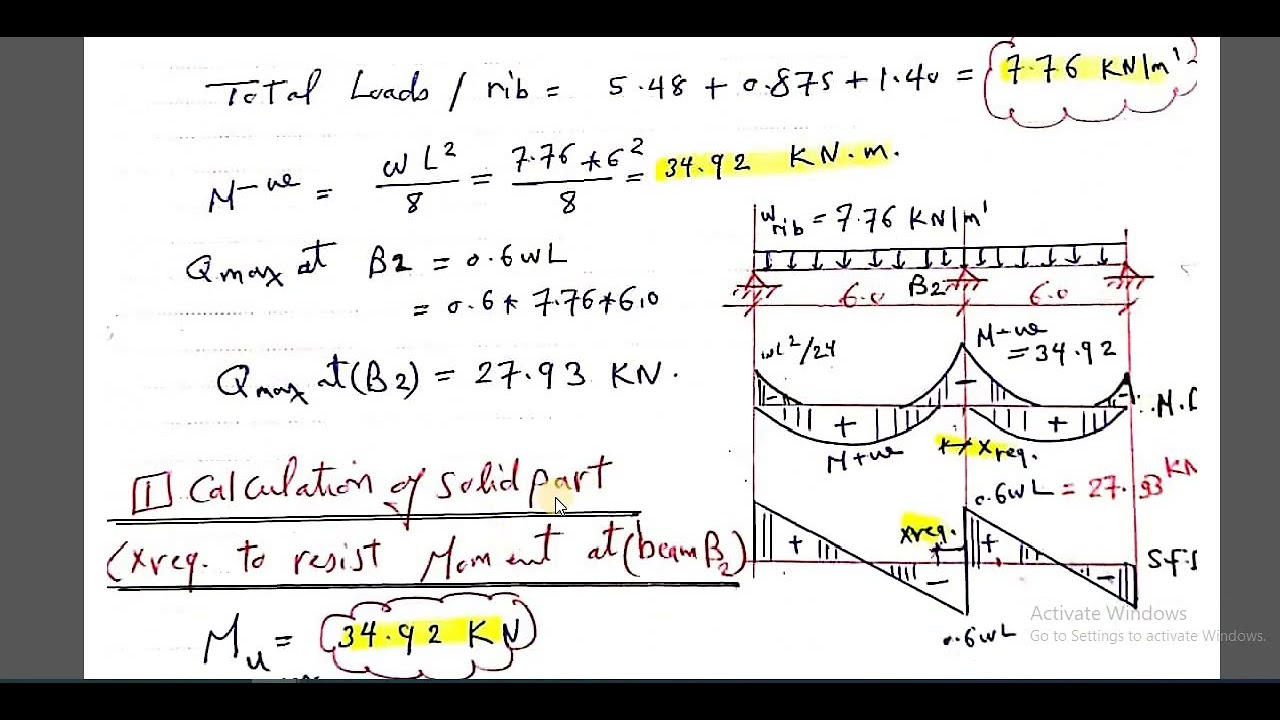 Total Loads / rib = 5.48 + 0.875 + 1.40 = 7.76 KN/m'
M-ve = wL²/8 = 7.76*6²/8 = 34.92 KN.m.
Qmax at B2 = 0.6wL
= 0.6 * 7.76*6.0
Qmax at(B2) = 27.93 KN.
1 Calculation of Solid part
(xreq. to resist Moment at(beam B2)
Mu = 34.92 KN
wrib = 7.76 KN/m'
6.0 B2 6.0
wL²/24
M-ve
= 34.92
M.
M+ve
xreq.
0.6wL = 27.93 KN
xreq.
S.f.
0.6wL
Activate Windows
Go to Settings to activate Windows.